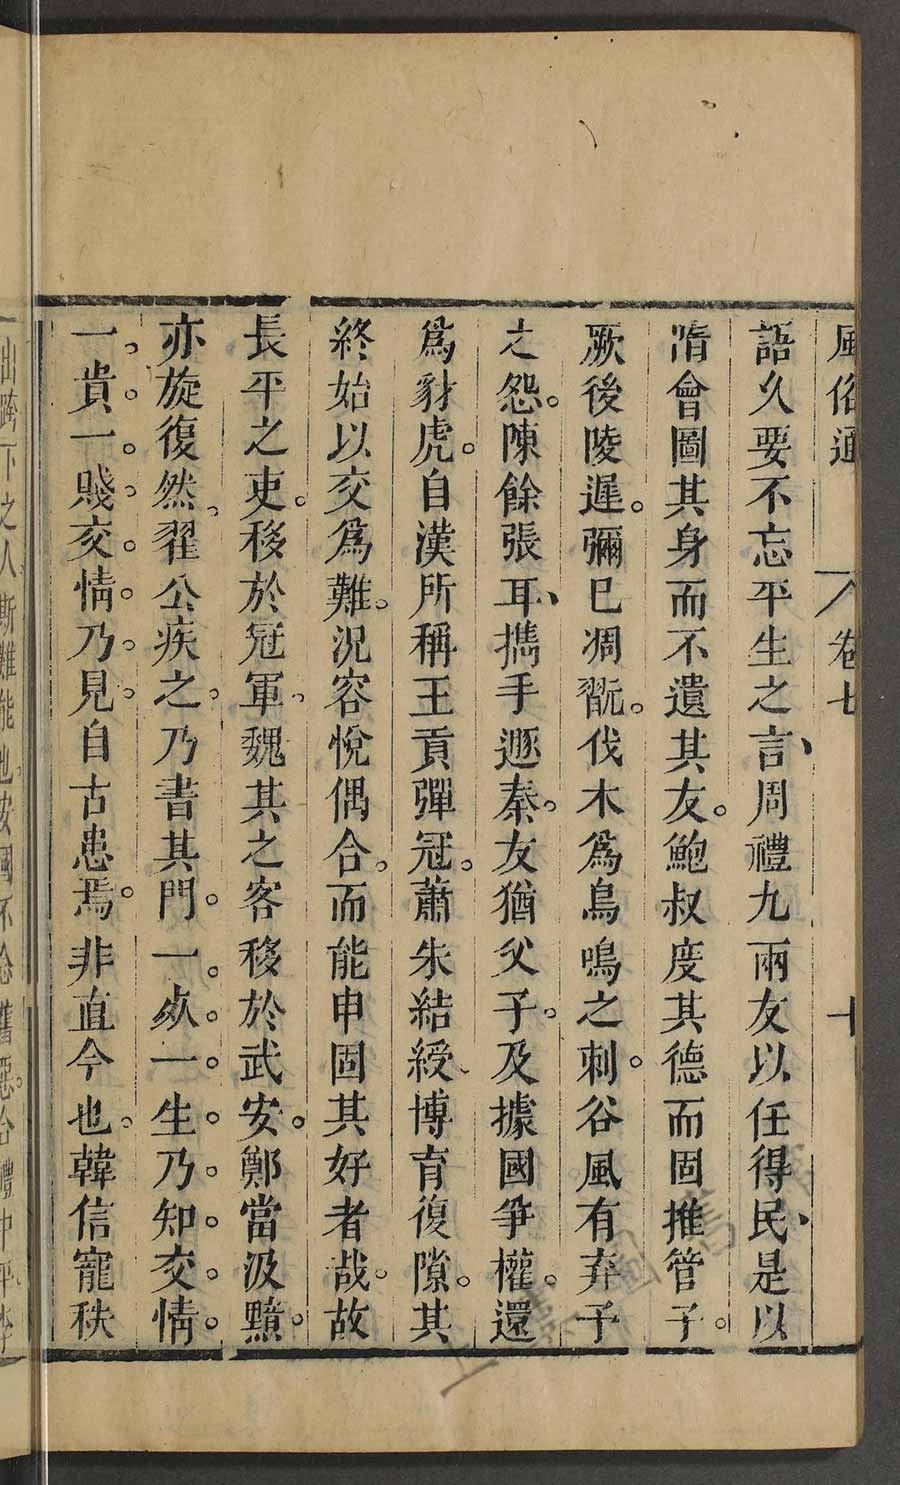 風俗通 卷七 十
語久要不忘平生之言、周禮九兩友以任得民、是以
隋會圖其身而不遺其友。鮑叔度其德而固推管子。
厥後陵遲。彌已凋翫。伐木爲鳥鳴之刺。谷風有弃予
之怨。陳餘張耳、攜手遯秦。友猶父子。及據國爭權。還
爲豺虎。自漢所稱王貢彈冠。蕭朱結綬、博育復隙。其
終始以交爲難。況容悅偶合。而能申固其好者哉。故
長平之吏。移於冠軍。魏其之客移於武安。鄭當汲黯。
亦旋復然。翟公疾之。乃書其門。一。奌。一。生。乃。知。交。情。
一。貴。一。賤。交。情。乃。見。自古患焉。非直今也。韓信寵秩
出跨下之人斯難能也。安國不念舊惡。合禮中平。李